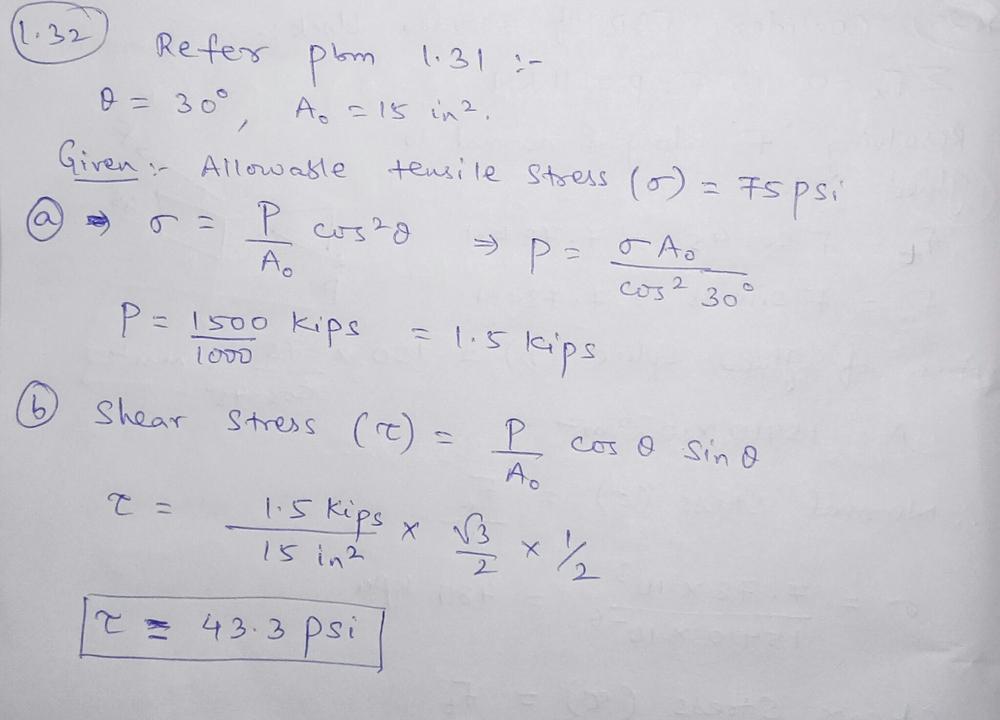 1.32 Refer pbm 1.31 :-
θ = 30°, A₀ = 15 in².
Given :- Allowable tensile stress (σ) = 75 psi
(a) ⇒ σ = P/A₀ cos²θ ⇒ P = σA₀/cos² 30°
P = 1500/1000 kips = 1.5 kips
(b) Shear stress (τ) = P/A₀ cos θ sin θ
τ = 1.5 kips/15 in² × √3/2 × 1/2
τ = 43.3 psi